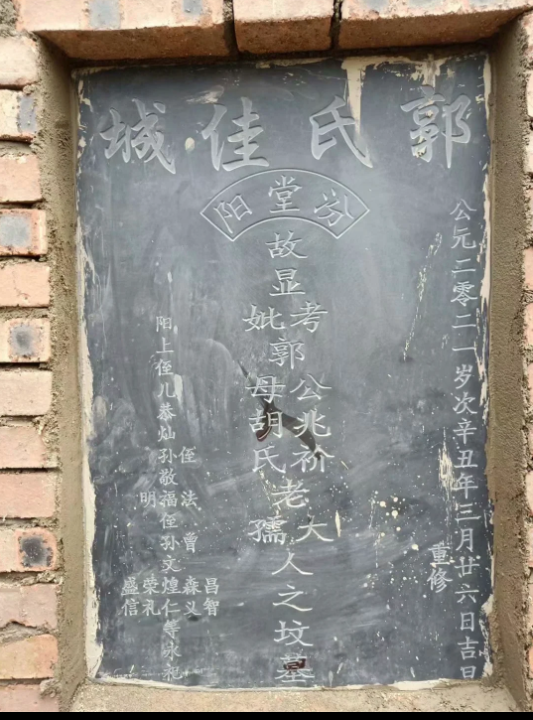 郭氏佳城
汾阳堂
公元二零二一岁次辛丑年三月廿六日吉日
重修
故显
考
妣
郭
公兆祄
母胡氏
老
大
孺
人之坟墓
昌智
侄法曾森义
阳上侄儿恭灿孙敬福侄孙文煌仁等永祀
明荣礼
盛信